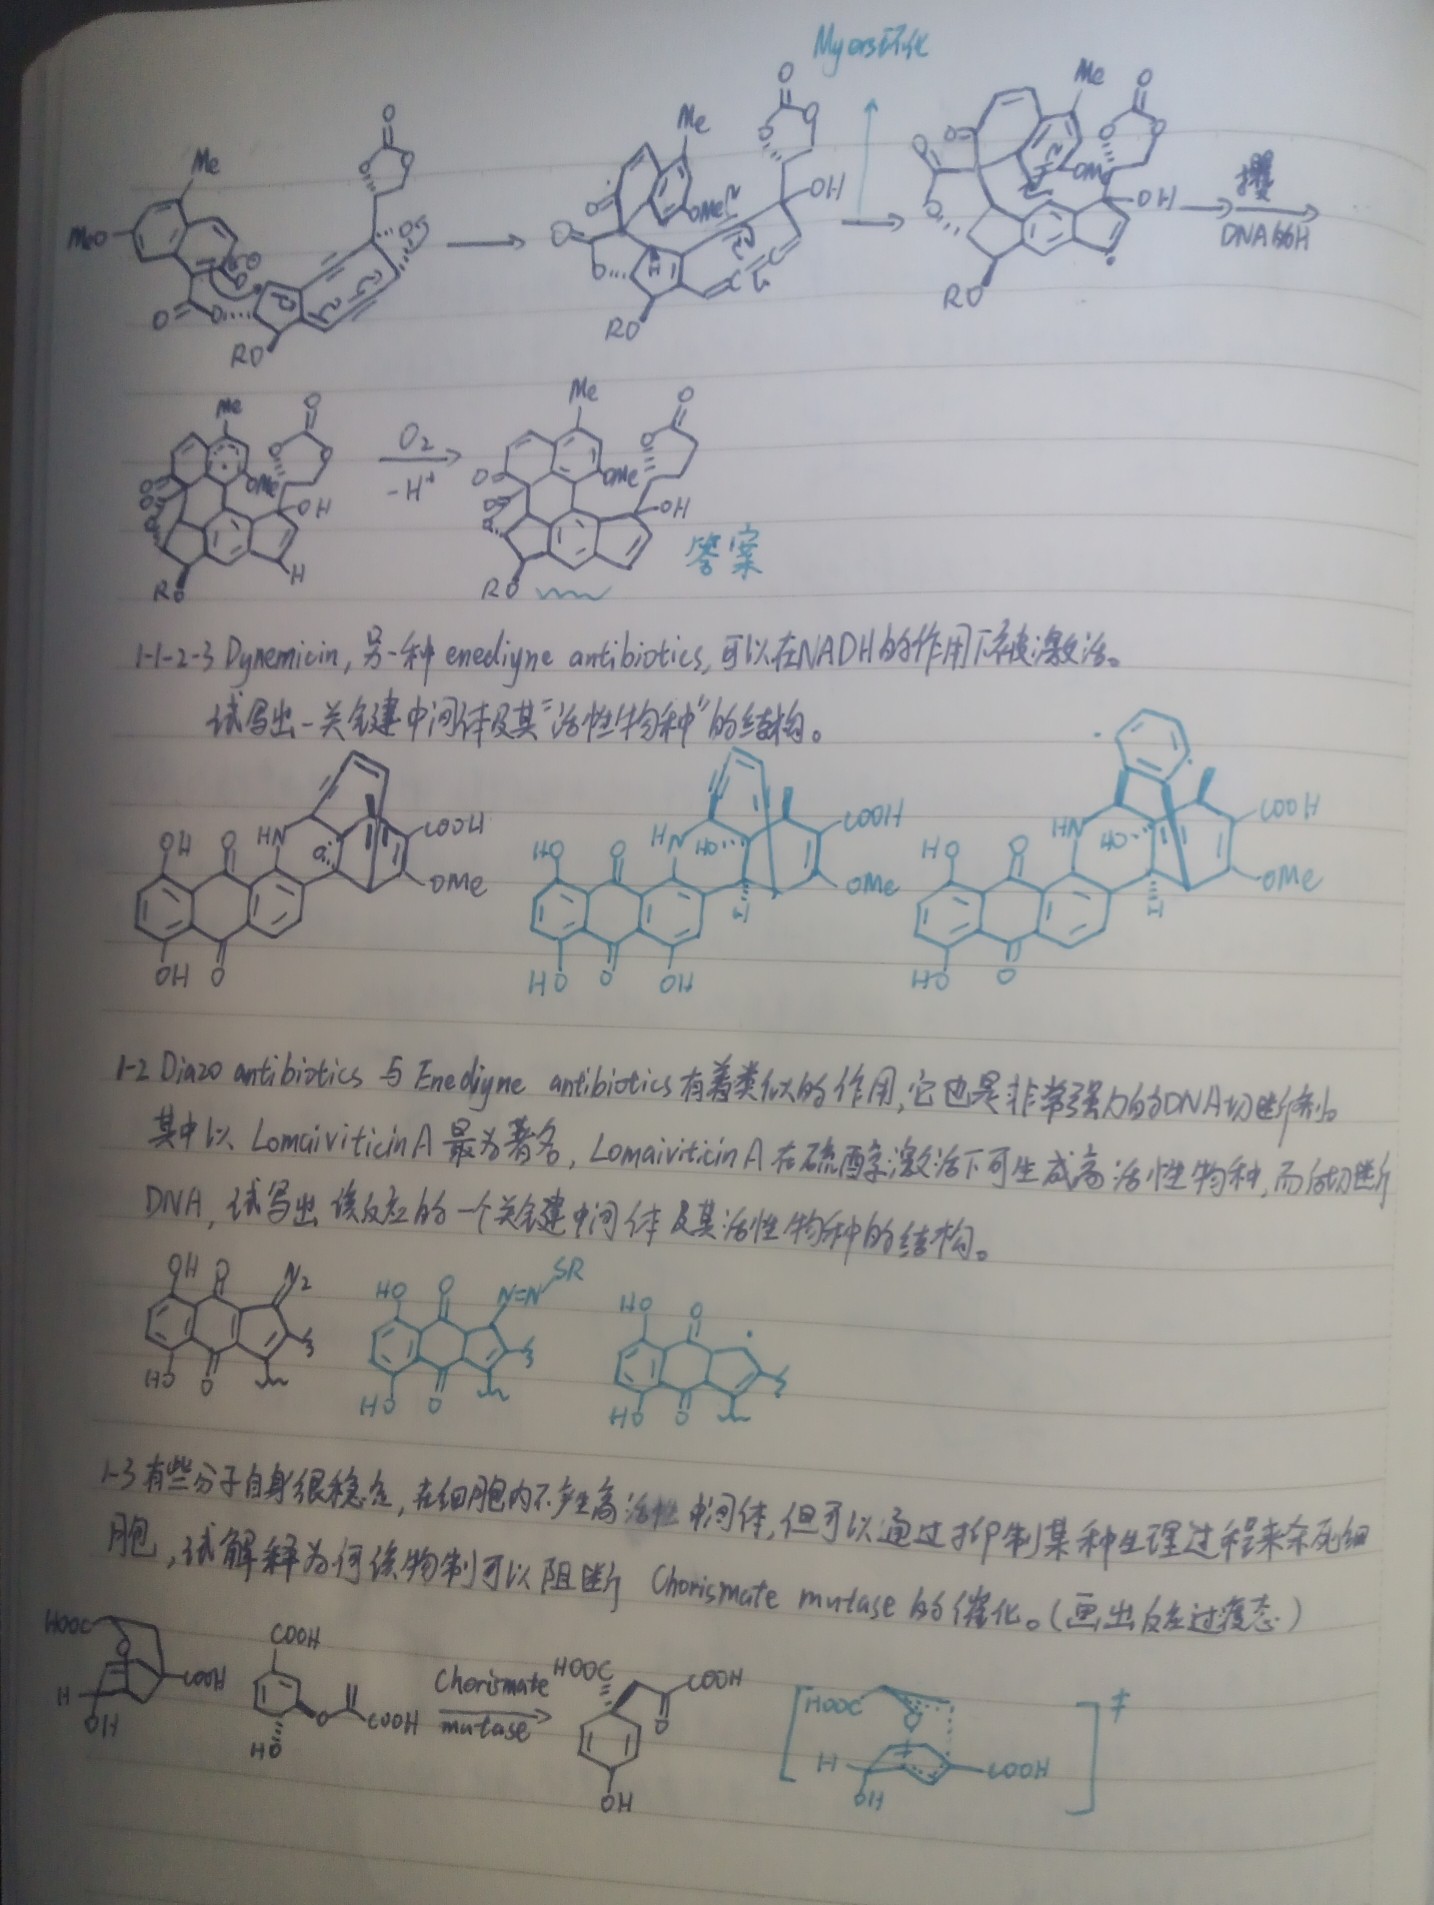 Myers环化
O
Me
MeO
O
O
O
RO
Me
O
OMe
OH
O
O
H
RO
Me
O
O
O
OMe
OH
RO
攫
DNA的H
Me
O
O
O
OMe
OH
H
RO
O₂
-H⁺
Me
O
O
O
OMe
OH
RO
答案
1-1-2-3 Dynemicin, 另一种 enediyne antibiotics, 可以在NADH的作用下被激活。
试写出一关键中间体及其“活性物种”的结构。
OH O HN O COOH OMe OH O
HO O HN HO COOH OMe H HO O OH
HO O HN HO COOH OMe H HO O
1-2 Diazo antibiotics 与 Enediyne antibiotics 有着类似的作用, 它也是非常强力的DNA切断剂。
其中以 Lomaiviticin A 最为著名, Lomaiviticin A 在硫醇激活下可生成高活性物种, 而后切断
DNA, 试写出该反应的一个关键中间体及其活性物种的结构。
OH O N₂ HO O
HO O N=N SR HO O
HO O HO O
1-3 有些分子自身很稳定, 在细胞内不产生高活性中间体, 但可以通过抑制某种生理过程来杀死细
胞, 试解释为何该物制可以阻断 Chorismate mutase 的催化。(画出反应过渡态)
HOOC O COOH H OH
COOH O COOH HO
Chorismate
mutase
HOOC COOH O OH
HOOC O H COOH OH ‡